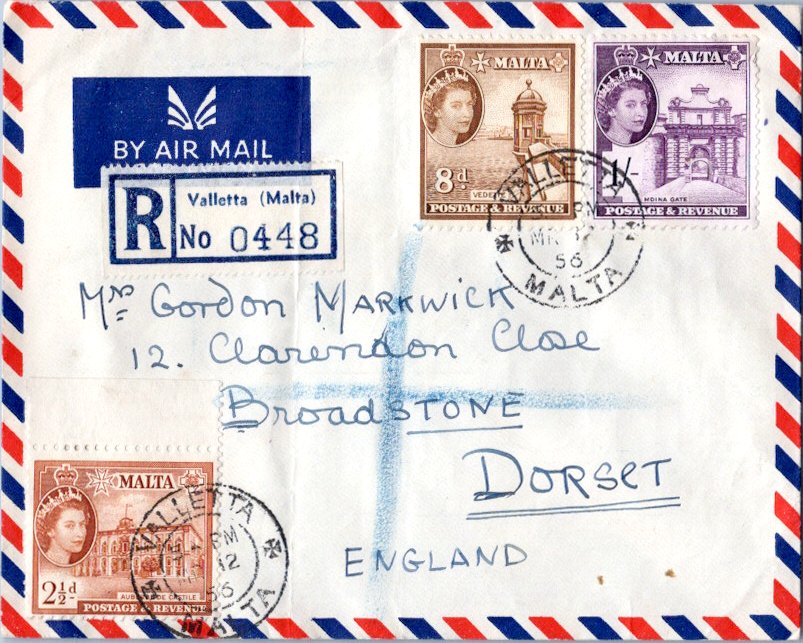 BY AIR MAIL
R
Valletta (Malta)
No 0448
MALTA
8d
POSTAGE & REVENUE
MALTA
1/-
MDINA GATE
POSTAGE & REVENUE
VALLETTA
PM
12
56
MALTA
Mrs Gordon MARKWICK
12. Clarendon Close
BroadSTONE
DORSET
ENGLAND
MALTA
2½d
POSTAGE & REVENUE
VALLETTA
PM
12
56
MALTA